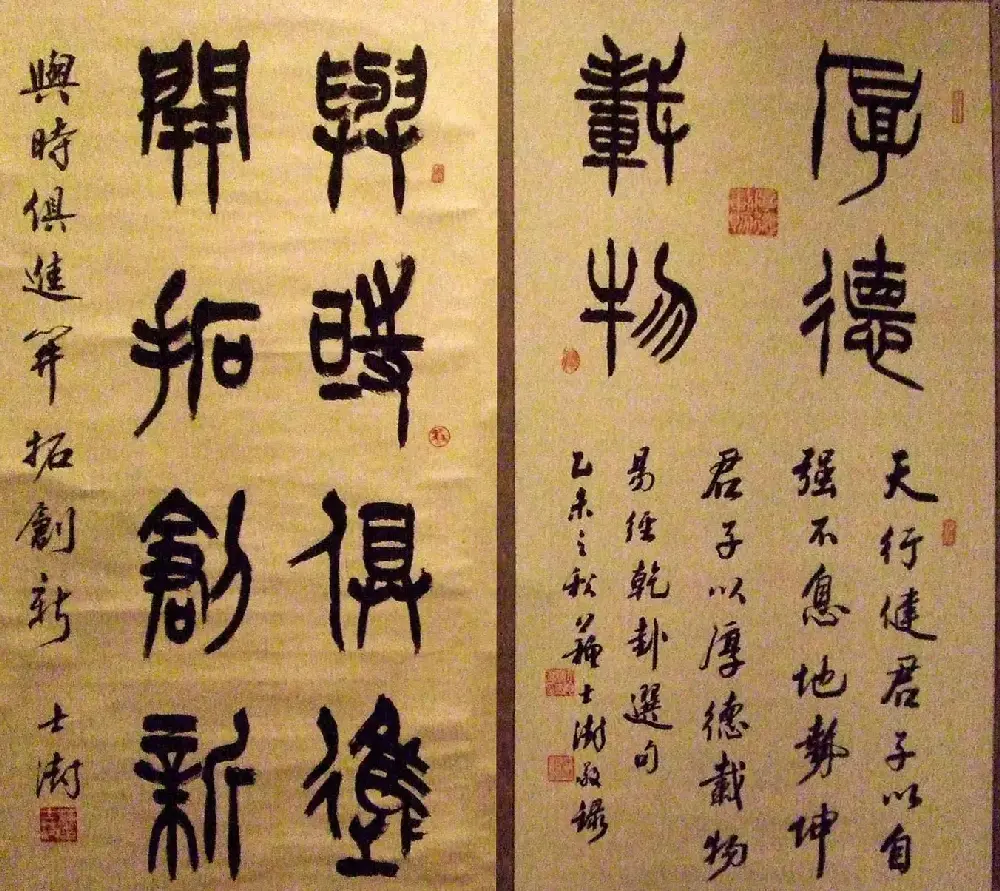 厚德
載物
天行健君子以自
强不息地勢坤
君子以厚德載物
易經乾卦選句
乙未之秋蘇士澍敬録
與時俱進
開拓創新
與時俱進開拓創新
士澍